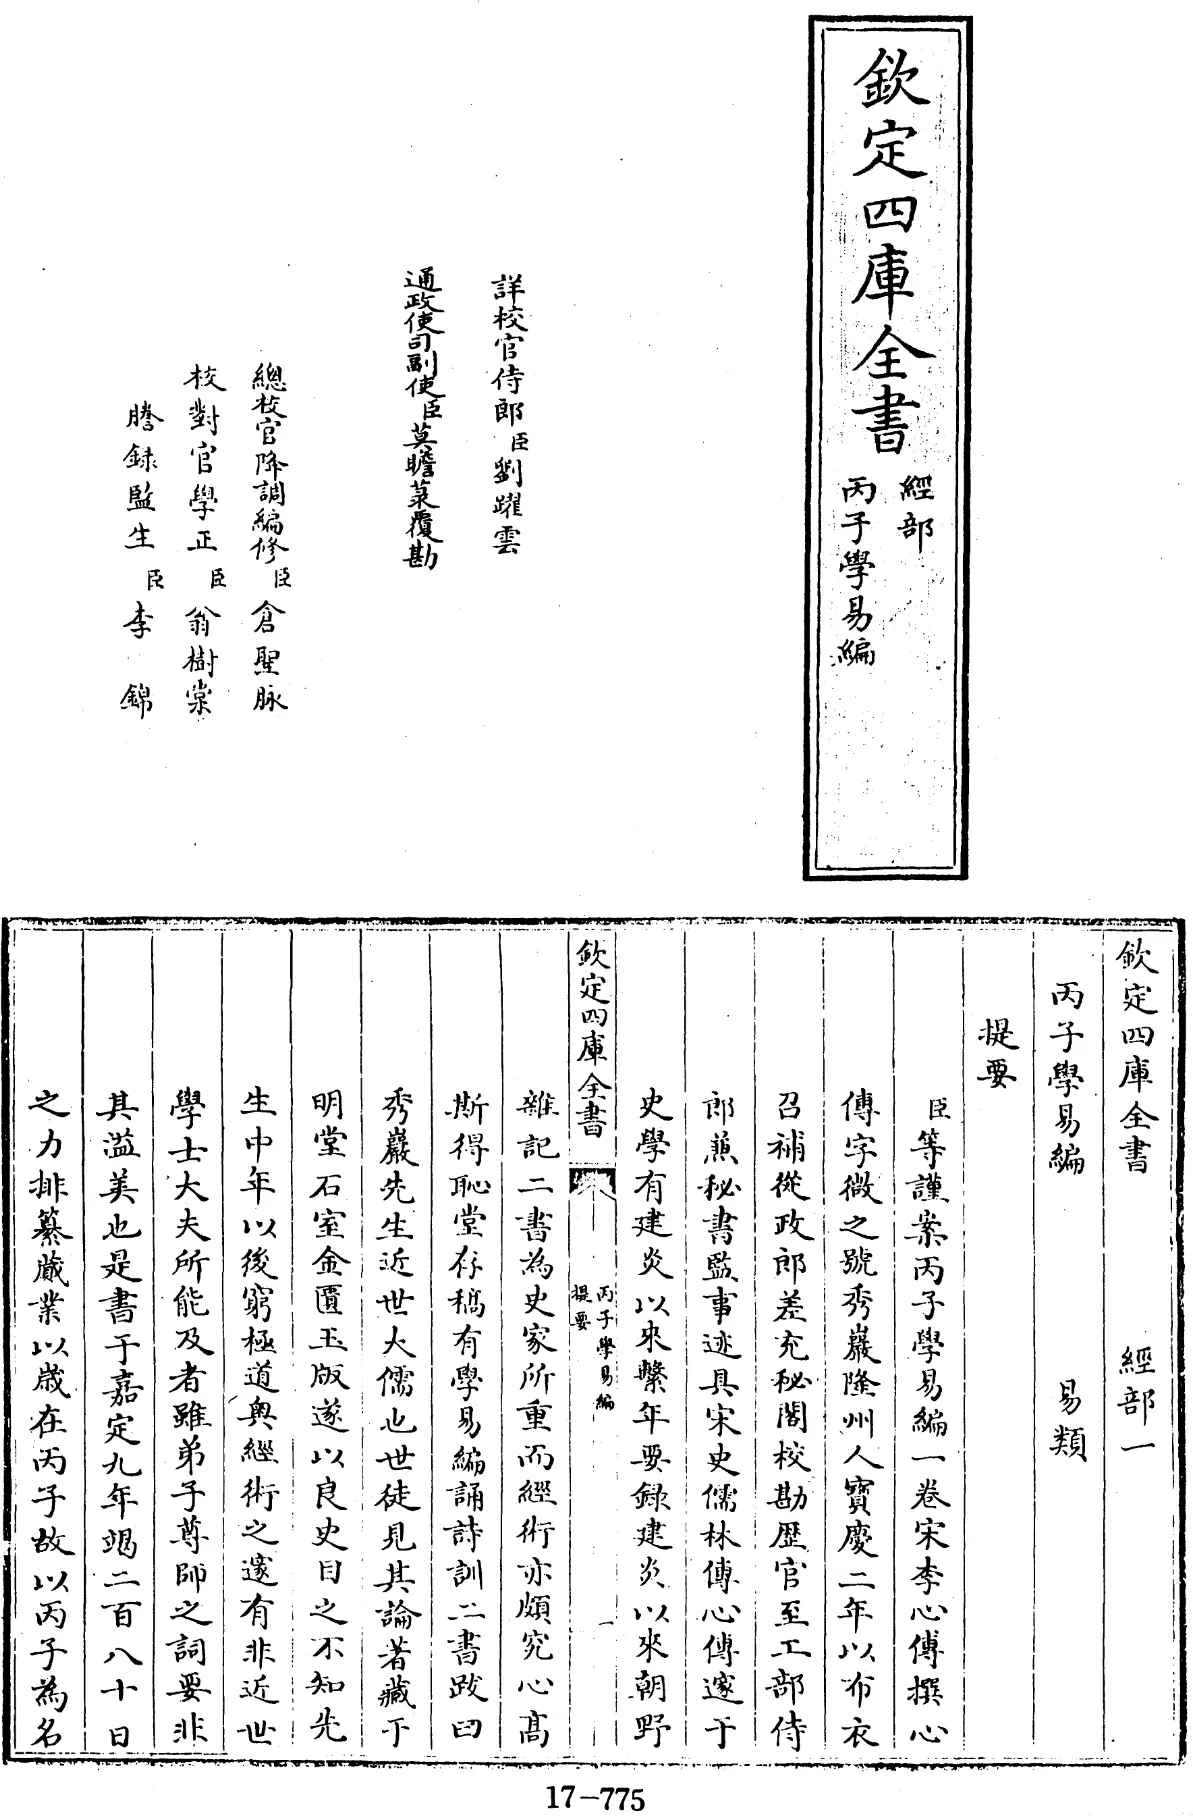 欽定四庫全書
經部
丙子學易編
詳校官侍郎臣劉躍雲
通政使司副使臣莫瞻菉覆勘
總校官降調編修臣倉聖脉
校對官學正臣翁樹棠
謄錄監生臣李錦
欽定四庫全書 經部一
丙子學易編 易類
提要
臣等謹案丙子學易編一卷宋李心傳撰心
傳字微之號秀巖隆州人寶慶二年以布衣
召補從政郎差充秘閣校勘歷官至工部侍
郎兼秘書監事迹具宋史儒林傳心傳邃于
史學有建炎以來繫年要錄建炎以來朝野
欽定四庫全書
丙子學易編
提要
一
雜記二書為史家所重而經術亦頗究心高
斯得恥堂存稿有學易編誦詩訓二書跋曰
秀巖先生近世大儒也世徒見其論著藏于
明堂石室金匱玉版遂以良史目之不知先
生中年以後窮極道奧經術之邃有非近世
學士大夫所能及者雖弟子尊師之詞要非
其溢美也是書于嘉定九年竭二百八十日
之力排纂蕆業以歲在丙子故以丙子為名
17-775